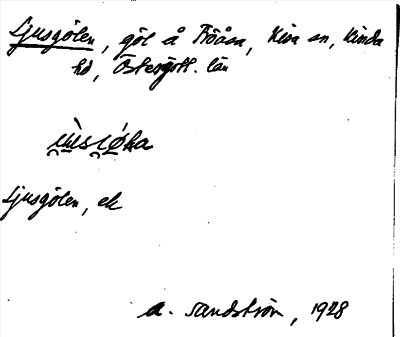 Ljusgölen, göl å Röösa, Kisa sn, Kinda
hd, Östergötl. län
Ljusgölen, ek
A. Sandström, 1928